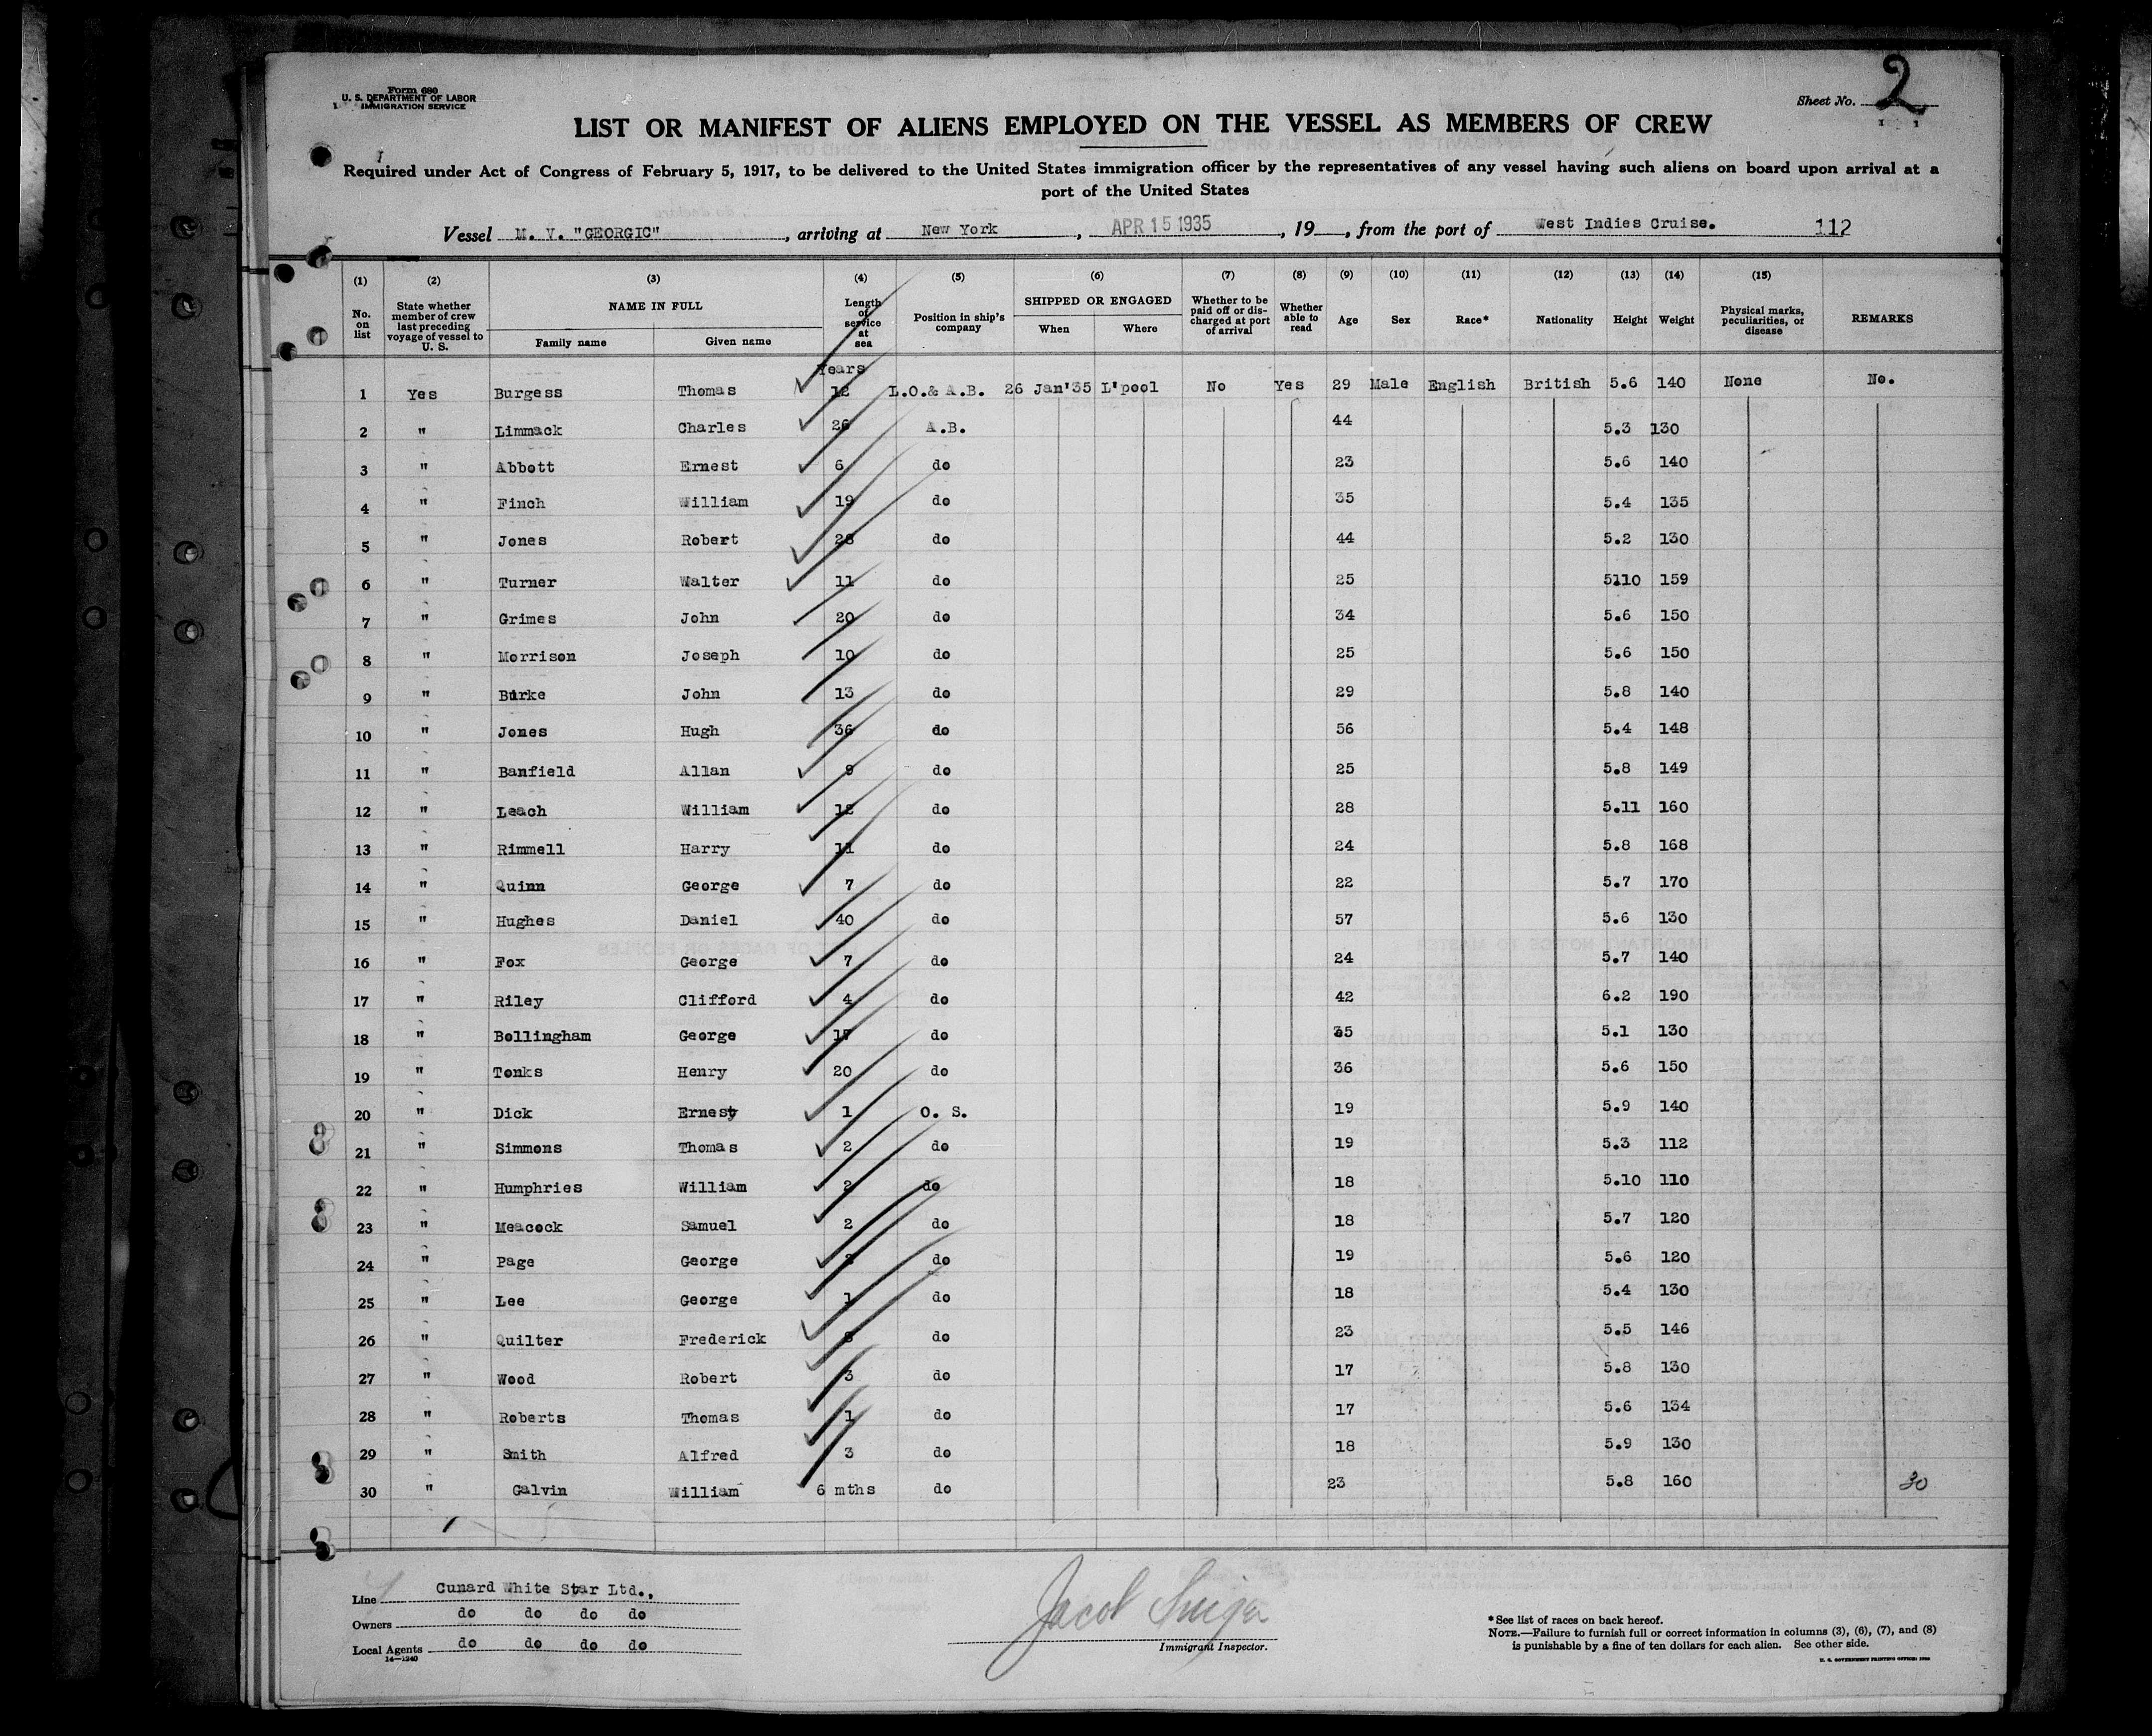 Form 680
U. S. DEPARTMENT OF LABOR
IMMIGRATION SERVICE
Sheet No. 2
LIST OR MANIFEST OF ALIENS EMPLOYED ON THE VESSEL AS MEMBERS OF CREW
Required under Act of Congress of February 5, 1917, to be delivered to the United States immigration officer by the representatives of any vessel having such aliens on board upon arrival at a
port of the United States
Vessel M. V. "GEORGIC", arriving at New York, APR 15 1935, 19 , from the port of West Indies Cruise. 112
(1) (2) (3) (4) (5) (6) (7) (8) (9) (10) (11) (12) (13) (14) (15)
No. on list
State whether member of crew last preceding voyage of vessel to U. S.
NAME IN FULL
Family name
Given name
Length of service at sea
Position in ship's company
SHIPPED OR ENGAGED
When
Where
Whether to be paid off or discharged at port of arrival
Whether able to read
Age
Sex
Race*
Nationality
Height
Weight
Physical marks, peculiarities, or disease
REMARKS
Years
1 Yes Burgess Thomas 12 L.O.& A.B. 26 Jan'35 L'pool No Yes 29 Male English British 5.6 140 None No.
2 " Limmack Charles 26 A.B. 44 5.3 130
3 " Abbott Ernest 6 do 23 5.6 140
4 " Finch William 19 do 35 5.4 135
5 " Jones Robert 28 do 44 5.2 130
6 " Turner Walter 11 do 25 5110 159
7 " Grimes John 20 do 34 5.6 150
8 " Morrison Joseph 10 do 25 5.6 150
9 " Burke John 13 do 29 5.8 140
10 " Jones Hugh 36 do 56 5.4 148
11 " Banfield Allan 9 do 25 5.8 149
12 " Leach William 12 do 28 5.11 160
13 " Rimmell Harry 11 do 24 5.8 168
14 " Quinn George 7 do 22 5.7 170
15 " Hughes Daniel 40 do 57 5.6 130
16 " Fox George 7 do 24 5.7 140
17 " Riley Clifford 4 do 42 6.2 190
18 " Bollingham George 17 do 35 5.1 130
19 " Tonks Henry 20 do 36 5.6 150
20 " Dick Ernest 1 O. S. 19 5.9 140
21 " Simmons Thomas 2 do 19 5.3 112
22 " Humphries William 2 do 18 5.10 110
23 " Meacock Samuel 2 do 18 5.7 120
24 " Page George do 19 5.6 120
25 " Lee George 1 do 18 5.4 130
26 " Quilter Frederick do 23 5.5 146
27 " Wood Robert 3 do 17 5.8 130
28 " Roberts Thomas 1 do 17 5.6 134
29 " Smith Alfred 3 do 18 5.9 130
30 " Galvin William 6 mths do 23 5.8 160 30
Line Cunard White Star Ltd.,
Owners do do do do
Local Agents do do do do
14—1240
Jacob
Immigrant Inspector.
*See list of races on back hereof.
NOTE.—Failure to furnish full or correct information in columns (3), (6), (7), and (8)
is punishable by a fine of ten dollars for each alien. See other side.
U. S. GOVERNMENT PRINTING OFFICE: